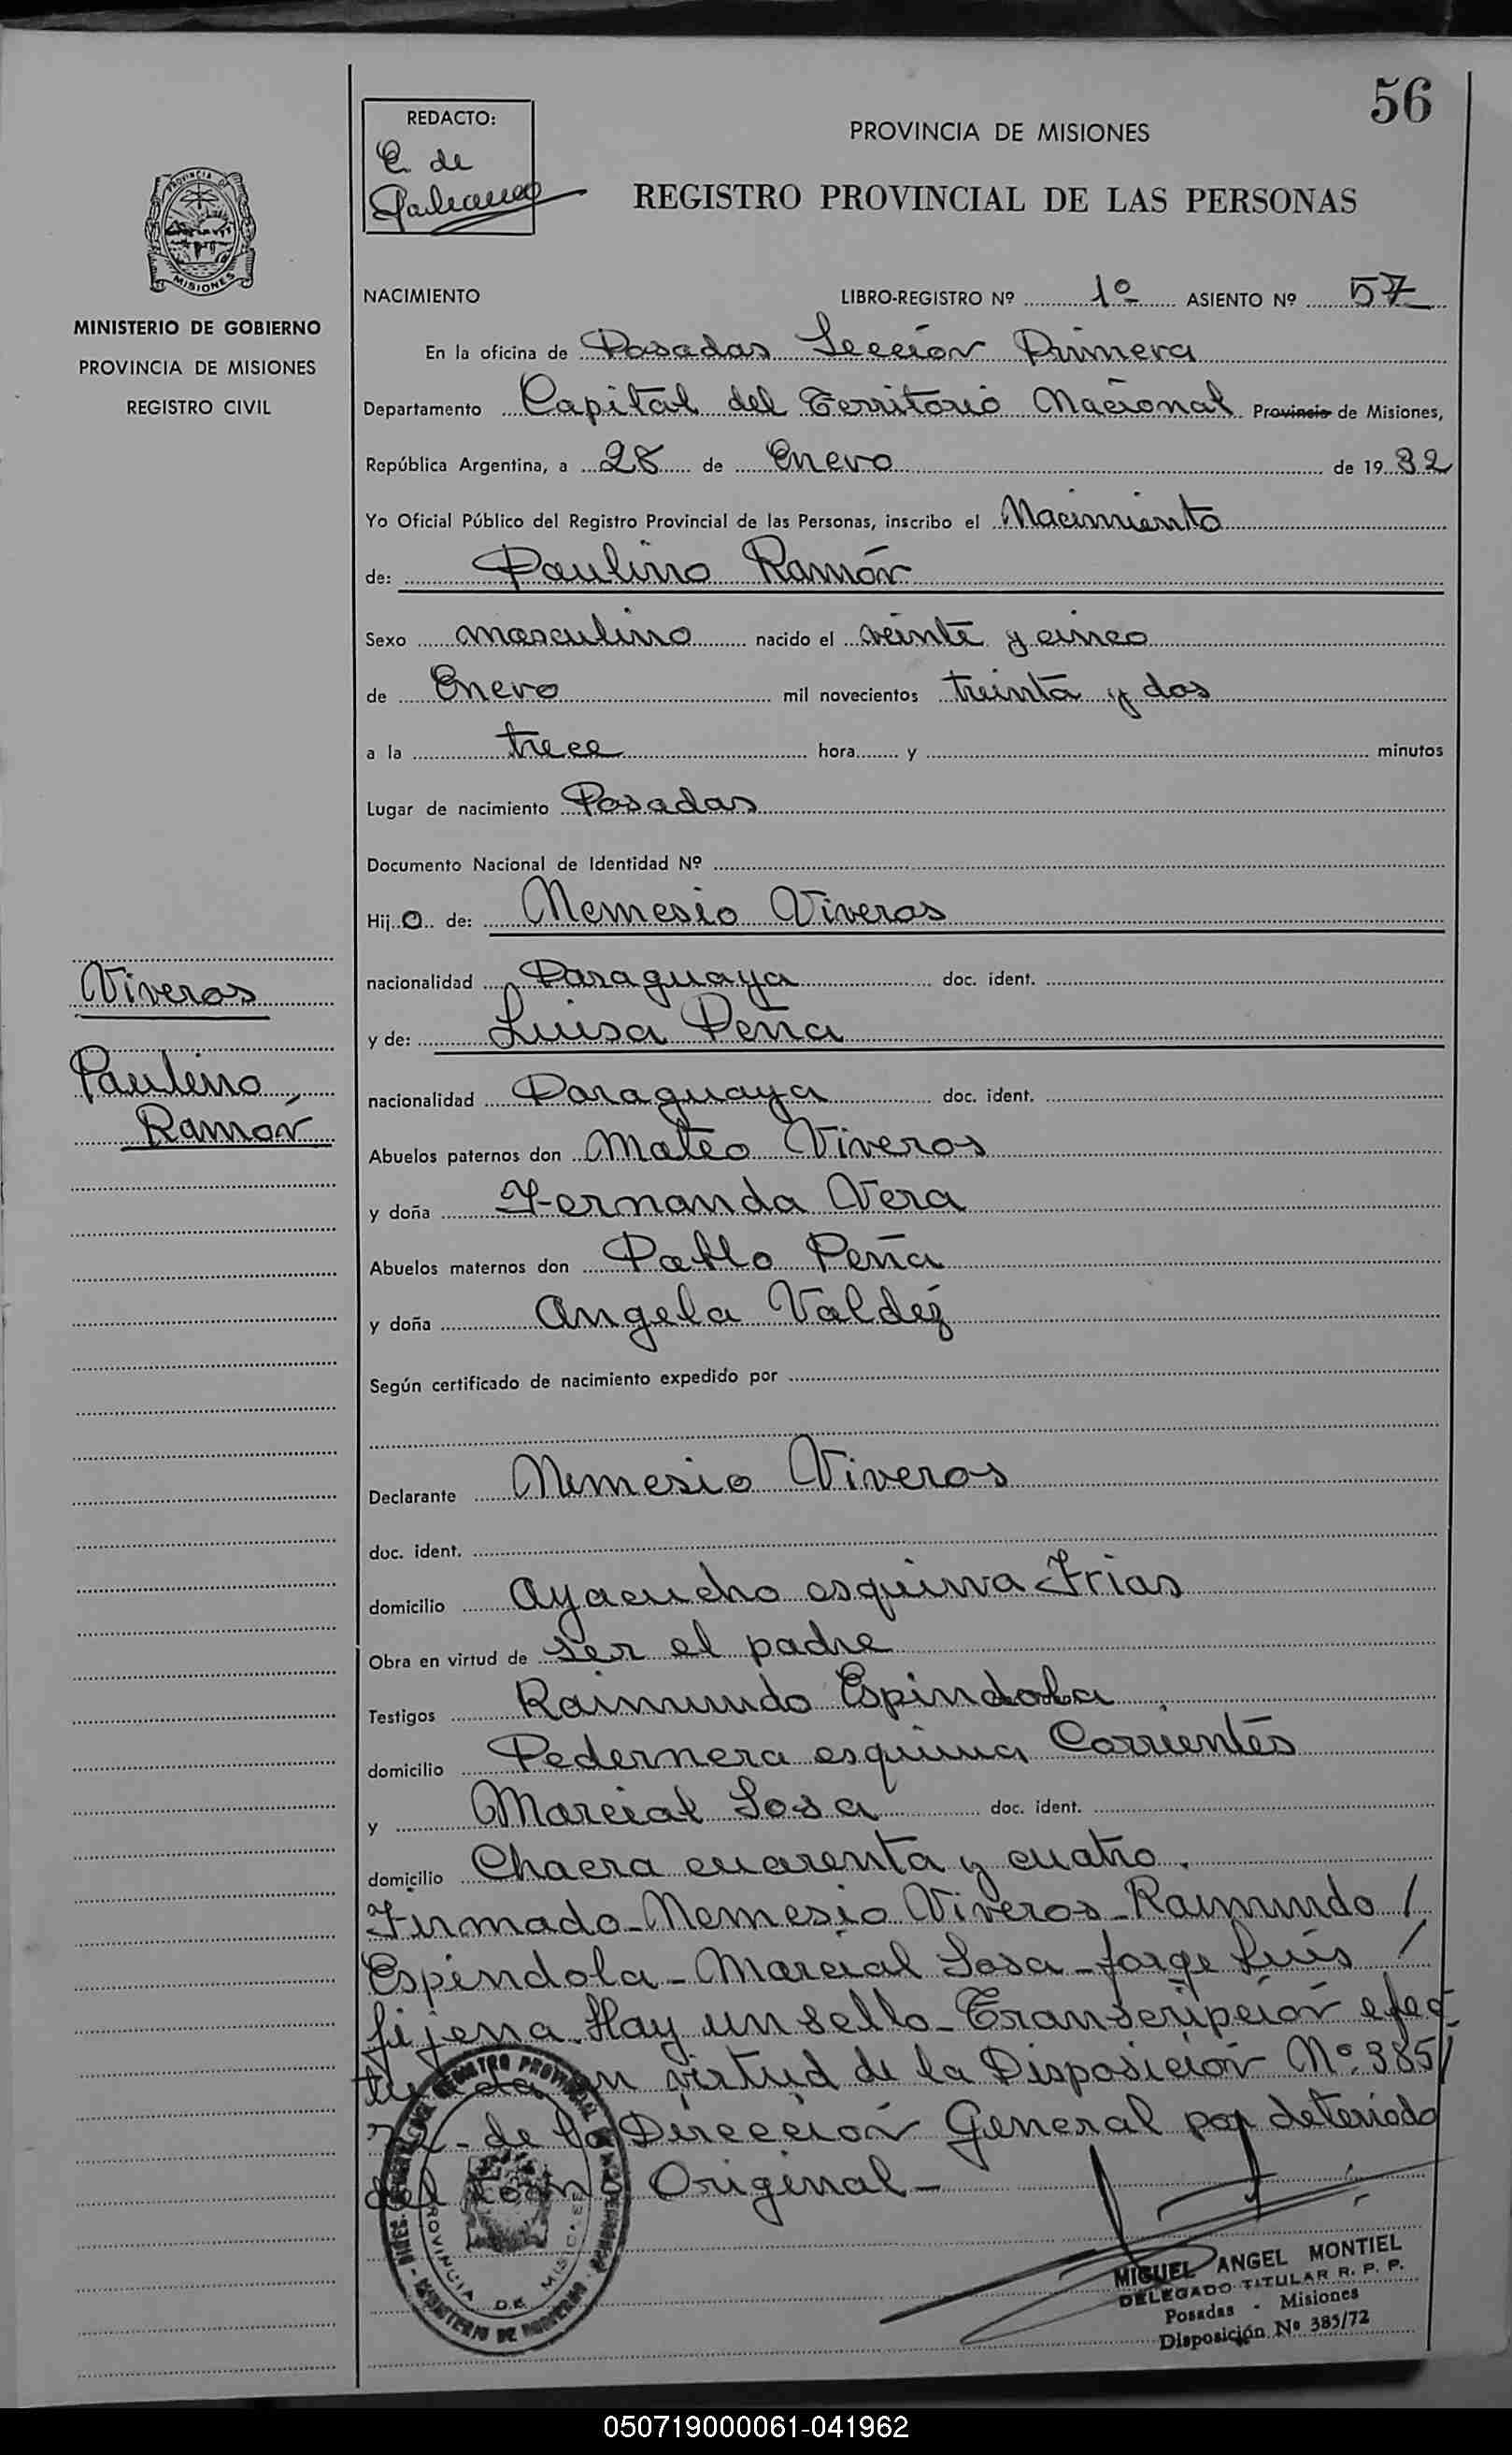 56
REDACTO:
E. de
PROVINCIA DE MISIONES
REGISTRO PROVINCIAL DE LAS PERSONAS
PROVINCIA DE
MISIONES
MINISTERIO DE GOBIERNO
PROVINCIA DE MISIONES
REGISTRO CIVIL
NACIMIENTO LIBRO-REGISTRO Nº 1º ASIENTO Nº 57
En la oficina de Posadas Sección Primera
Departamento Capital del Territorio Nacional Provincia de Misiones,
República Argentina, a 28 de Enero de 19 32
Yo Oficial Público del Registro Provincial de las Personas, inscribo el Nacimiento
de: Paulino Ramón
Sexo masculino nacido el veinte y cinco
de Enero mil novecientos treinta y dos
a la trece hora y minutos
Lugar de nacimiento Posadas
Documento Nacional de Identidad Nº
Hij o de: Nemesio Viveros
nacionalidad Paraguaya doc. ident.
y de: Luisa Peña
nacionalidad Paraguaya doc. ident.
Viveros
Paulino
Ramón
Abuelos paternos don Mateo Viveros
y doña Fernanda Vera
Abuelos maternos don Pablo Peña
y doña Angela Valdéz
Según certificado de nacimiento expedido por
Declarante Nemesio Viveros
doc. ident.
domicilio Ayacucho esquina Frias
Obra en virtud de ser el padre
Testigos Raimundo Espindola
domicilio Pedernera esquina Corrientes
y Marcial Sosa doc. ident.
domicilio Chacra cuarenta y cuatro.
Firmado-Nemesio Viveros-Raimundo /
Espindola-Marcial Sosa-Jorge Luis /
Jijena. Hay un sello-Transcripción efec
tuada en virtud de la Disposición Nº 385/
72- de la Dirección General por deteriodo
del tomo Original-
MIGUEL ANGEL MONTIEL
DELEGADO TITULAR R. P. P.
Posadas - Misiones
Disposición Nº 385/72
PROVINCIA DE MISIONES
MINISTERIO DE GOBIERNO
050719000061-041962